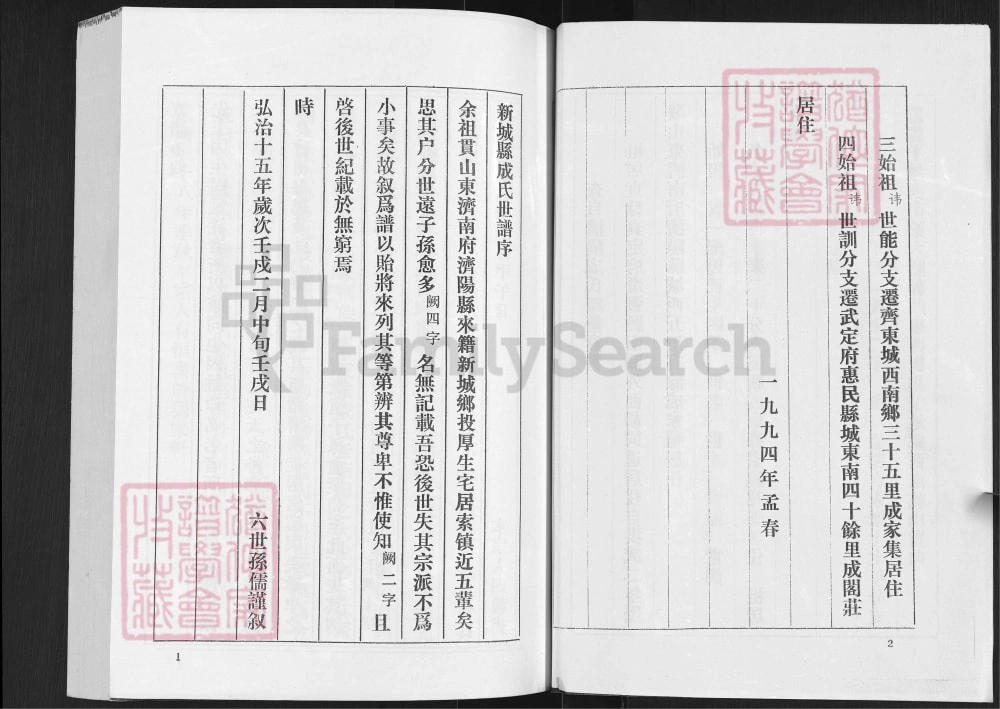 三始祖讳世能分支遷齊東城西南鄉三十五里成家集居住
四始祖讳世訓分支遷武定府惠民縣城東南四十餘里成閣莊
居住
一九九四年孟春
2
新城縣成氏世譜序
余祖貫山東濟南府濟陽縣來籍新城鄉投厚生宅居索镇近五輩矣
思其户分世遠子孫愈多闕四字名無記載吾恐後世失其宗派不爲
小事矣故叙爲譜以貽將來列其等第辨其尊卑不惟使知闕二字且
啓後世紀載於無窮焉
時
弘治十五年歲次壬戌二月中旬壬戌日
六世孫儒謹叙
1
FamilySearch